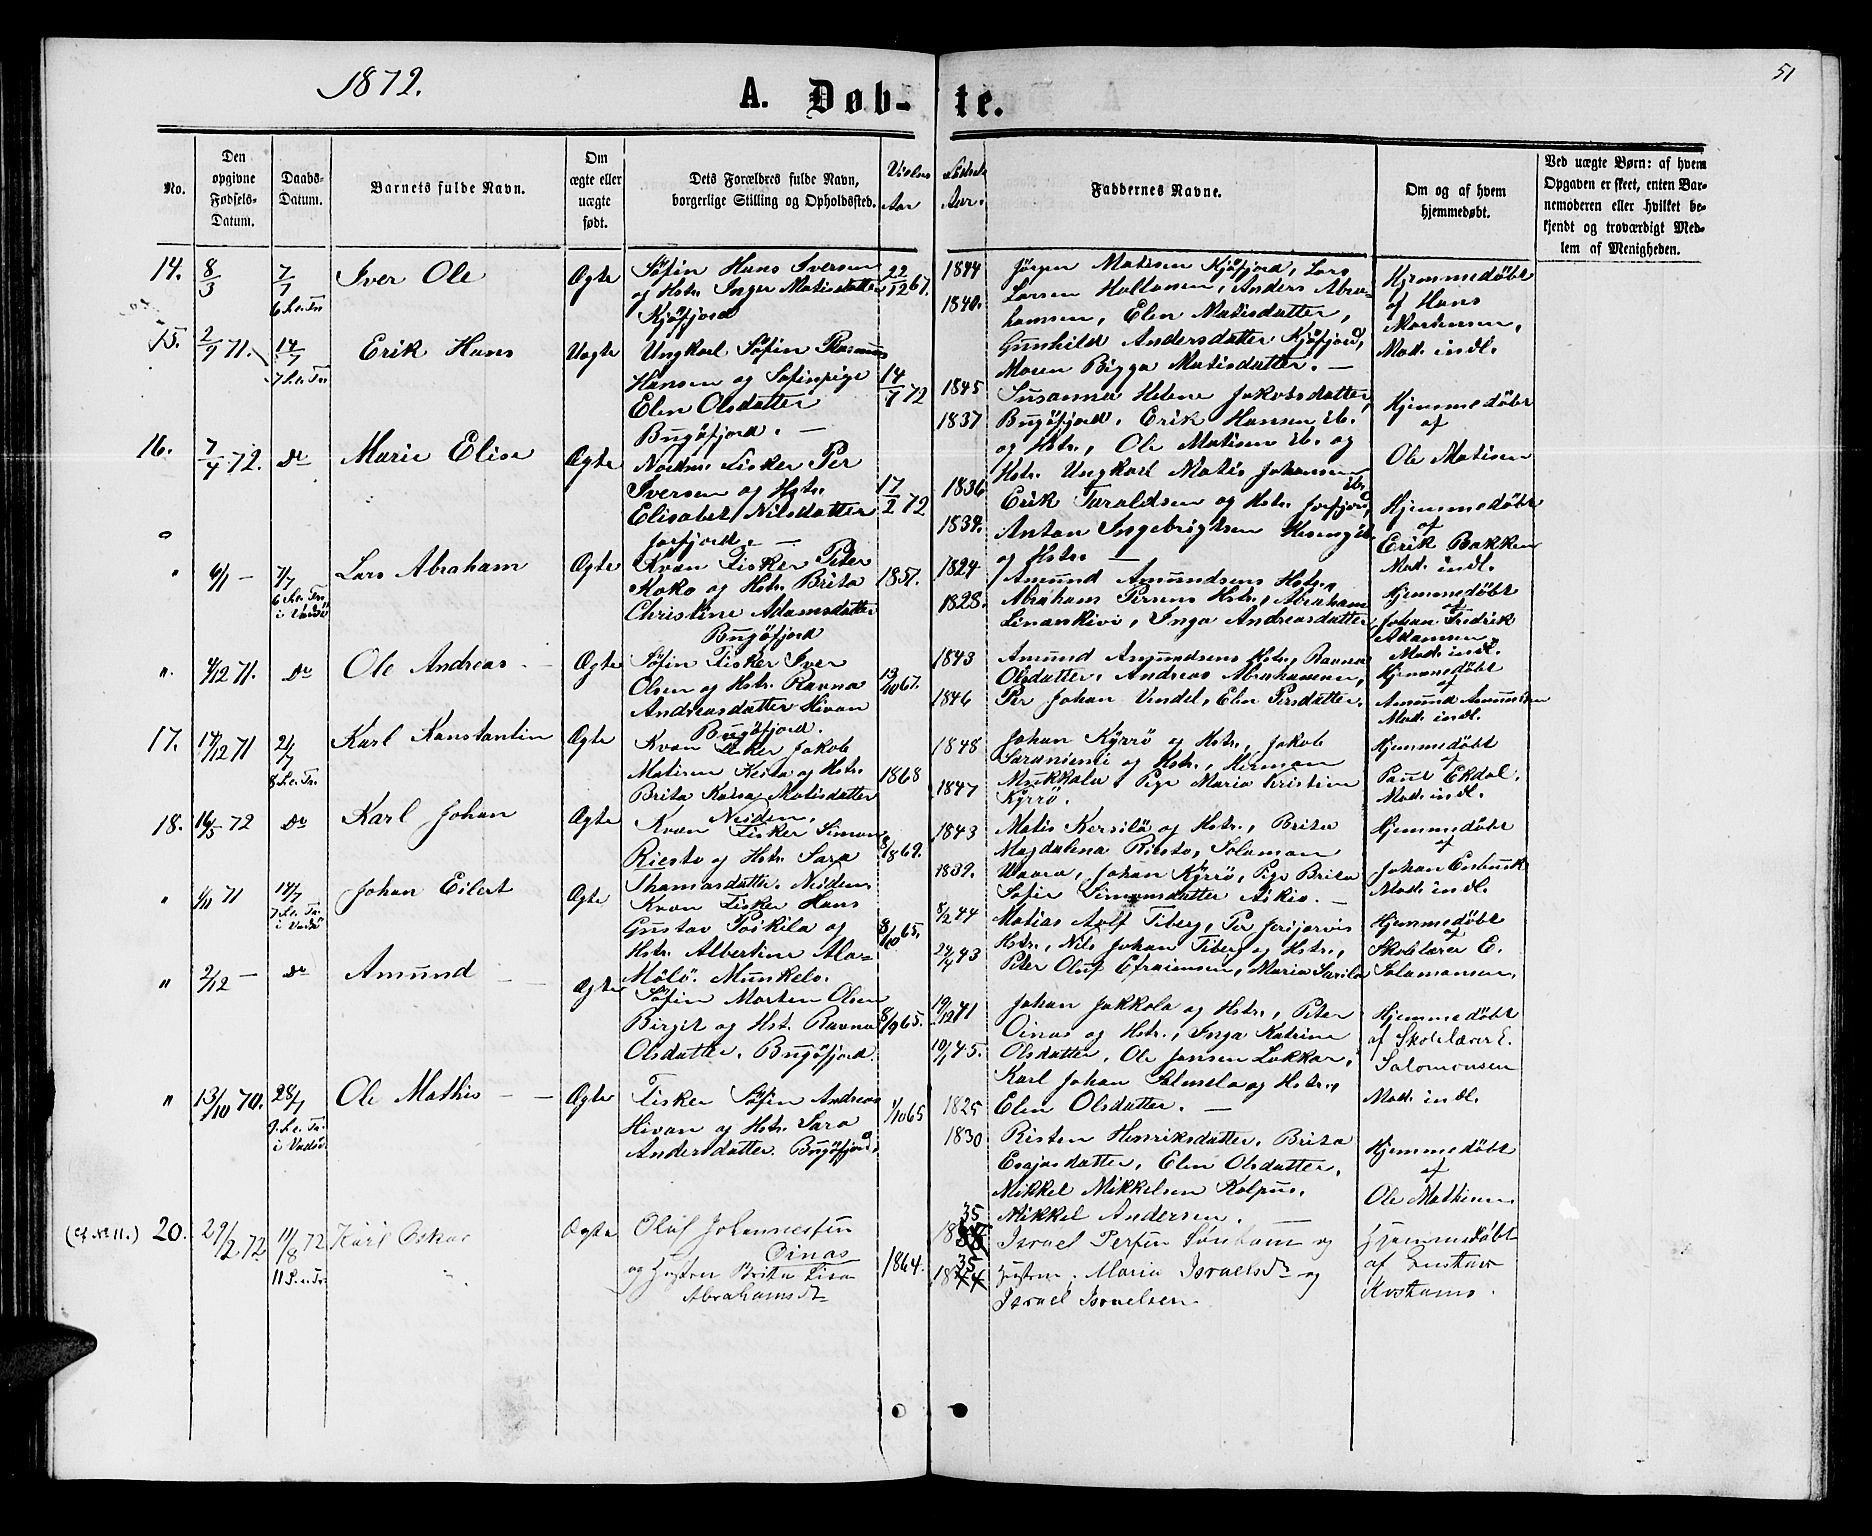 1872.
51
A. Døb-te.
No.
Den opgivne Fødsels-Datum.
Daabs-Datum.
Barnets fulde Navn.
Om ægte eller uægte født.
Dets Forældres fulde Navn, borgerlige Stilling og Opholdssted.
Vielses Aar
Fødsels Aar.
Faddernes Navne.
Om og af hvem hjemmedøbt.
Ved uægte Børn: af hvem
Opgaven er skeet, enten Bar-
nemoderen eller hvilket be-
kjendt og troværdigt Med-
lem af Menigheden.
14. 8/3 7/7 6 S. e. Tr. Iver Ole Ægte
Søfin Hans Iversen
og Hstr. Inger Matisdatter
Kjöfjord
22/12 67.
1844
1840.
Jørgen Matisen Kjöfjord, Lars
Larsen Haltonen, Anders Abra-
hamsen, Elen Matisdatter,
Gunhild Andersdatter Kjöfjord,
Maren Bigga Matisdatter. —
Hjemmedöbt
af Hans
Mortensen,
Mod. indl.
15. 2/9 71. 14/7 7 S. e. Tr. Erik Hans Uægte
Ungkarl Söfin Rasmus
Hansen og Söfinpige
Elen Olsdatter
Bugöfjord. —
14/7 72
1845
1837
Susanna Helene Jakobsdatter,
Bugöfjord, Erik Hansen ib.
og Hstr., Ole Matisen ib. og
Hstr. Ungkarl Matis Johansen ib.
Hjemmedöbt
af
Ole Matisen
16. 7/4 72. Do Marie Elisa Ægte
Nordm. Fisker Per
Iversen og Hstr.
Elisabet Nilsdatter
Jarfjord. —
17/2 72
1836
1839.
Erik Taraldsen og Hstr. Jarfjord,
Anton Ingebrigtsen
og Hstr. —
Hjemmedöbt
af
Erik Bakken
Mod. indl.
" 6/1 — 7/7 6 S. e. Tr. i Vadsö Lars Abraham Ægte
Kvæn Fisker Peter
Koko og Hstr. Brita
Christine Adamsdatter
Bugöfjord
1857.
1824
1828.
Amund Amundsens Hstr.,
Abraham Persens Hstr., Abraham
Linankivi, Inga Andreasdatter
Hjemmedöbt
af
Johan Fredrik
Adamsen
Mod. indl.
". 4/12 71. Do Ole Andreas — Ægte
Söfin Fisker Iver
Olsen og Hstr. Ravna
Andreasdatter Hivan
Bugöfjord.
13/10 67.
1843
1846
Amund Amundsens Hstr., Ravna
Olsdatter, Andreas Abrahamsen,
Per Johan Vendel, Elen Persdatter.
Hjemmedöbt
af
Amund Amundsen
Mod. indl.
17. 14/12 71 21/7 8 S. e. Tr. Karl Konstantin Ægte
Kvæn Fisker Jakob
Matisen Keska og Hstr.
Brita Kaisa Matisdatter
Neiden.
1868
1848
1847
Johan Kyrrö og Hstr., Jakob
Saraniemi og Hstr., Herman
Mukkala, Pige Maria Kristine
Kyrrö.
Hjemmedöbt
af
Paul Ekdal.
Mod. indl.
18. 16/5 72 Do Karl Johan Ægte
Kvæn Fisker Simon
Riesto og Hstr. Sara
Thomasdatter. Neiden.
8/8 69.
1843
1839.
Matis Kersilö og Hstr., Brita
Magdalena Riesto, Salamon
Vaara, Johan Kyrrö, Pige Brita
Sofie Simonsdatter Askia. —
Hjemmedöbt
af
Johan
Mod. indl.
" 1/11 71 14/7 7 S. e. Tr. i Vadsö Johan Eilert Ægte
Kvæn Fisker Hans
Gustav Poikila og
Hstr. Albertine Ala-
Mölö. Munkelv.
8/10 65.
8/2 44
24/4 43
Matias Adolf Tiberg, Per Jerijervis
Hstr., Nils Johan Tiberg og Hstr.,
Peter Oluf Efraimsen, Maria Savila
Hjemmedöbt
af
Skolelærer E.
Salamonsen,
" 2/12 — Do Amund — — Ægte
Söfin Morten Olsen
Birgit og Hst. Ravna
Olsdatter. Bugöfjord.
8/9 65.
19/12 41
10/1 45.
Johan Jakkola og Hstr., Peter
Oinas og Hstr., Inga Katrine
Olsdatter, Ole Jansen Lukkar,
Karl Johan Salmela og Hstr.,
Elen Olsdatter. —
Hjemmedöbt
af Skolelærer E.
Salomonsen
Mod. indl.
" 13/10 70. 28/7 9 S. e. Tr. i Vadsö Ole Mathis — — Ægte
Fisker Söfin Andreas
Hivan og Hstr. Sara
Andersdatter. Bugöfjord,
1/10 65
1825
1830
Risten Henriksdatter, Brita
Esajasdatter, Elen Olsdatter,
Mikkel Mikkelsen Kalpus.
Mikkel Andersen. —
Hjemmedöbt
af
Ole Mathisen
(Cf. No 11.) 20. 29/2 72 11/8 72 11 S. e. Tr. Karl Oskar Ægte
Oluf Johannessen
Oinas
og Hustru Brita Lisa
Abrahamsdr
1864.
1835
1835
Israel Persen og
Hustru, Maria Israelsdr og
Israel Israelsen
Hjemmedöbt
af Gustav